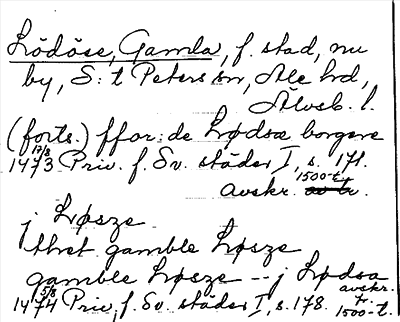 Lödöse, Gamla, f. stad, nu
by, S:t Peters sn, Ale hd,
Älvsb. l.
(forts.) ffor: de Lødsæ borgere
1473 17/8 Priv. f. Sv. städer I, s. 171.
avskr. 1500-t.
j Løsze
thet gamble Løsze
gamble Løsze -- j Lødsa
1474 5/8 Priv. f. Sv. städer I, s. 178. avskr. fr. 1500-t.